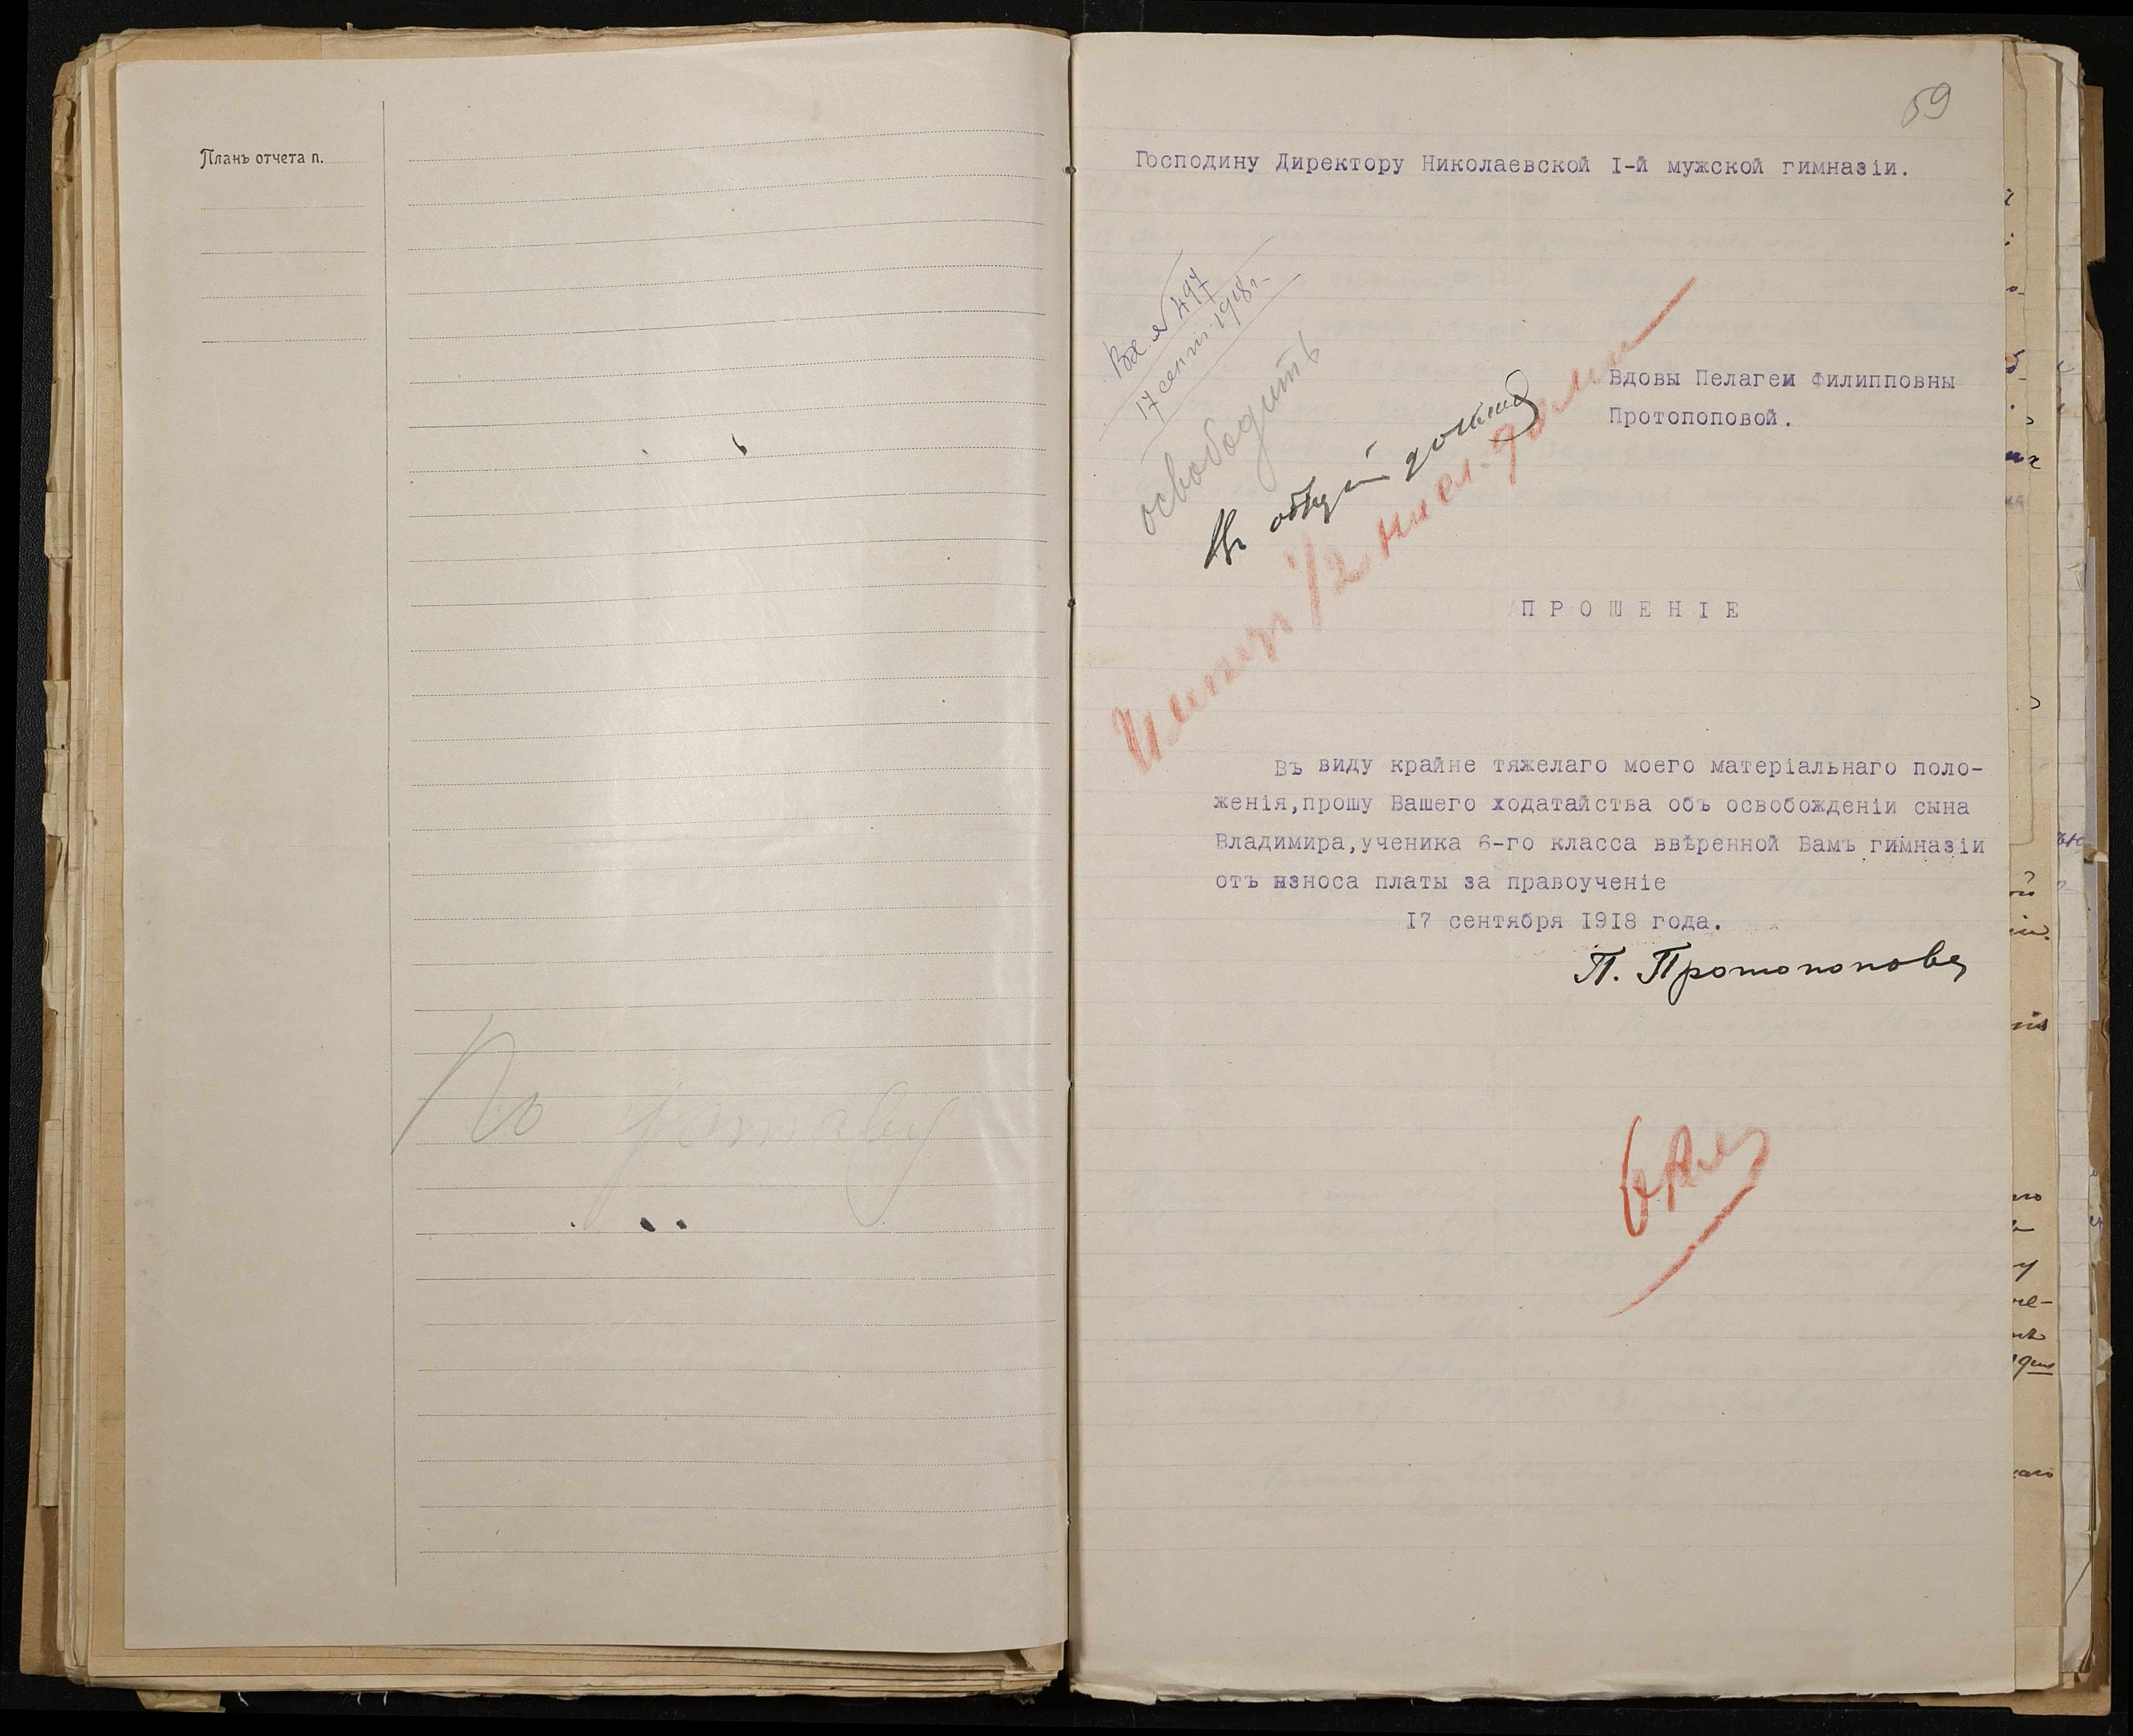 Планъ отчета п.
По уставу
59
Господину Директору Николаевской I-й мужской гимназіи.
Вх. № 497
17 сент. 1918 г.
освободить
Вдовы Пелагеи Филипповны
Протопоповой.
Къ общей
1/2
ПРОШЕНІЕ
Въ виду крайне тяжелаго моего матеріальнаго поло-
женія,прошу Вашего ходатайства объ освобожденіи сына
Владимира,ученика 6-го класса ввѣренной Вамъ гимназіи
отъ взноса платы за правоученіе
17 сентября 1918 года.
П. Протопопова